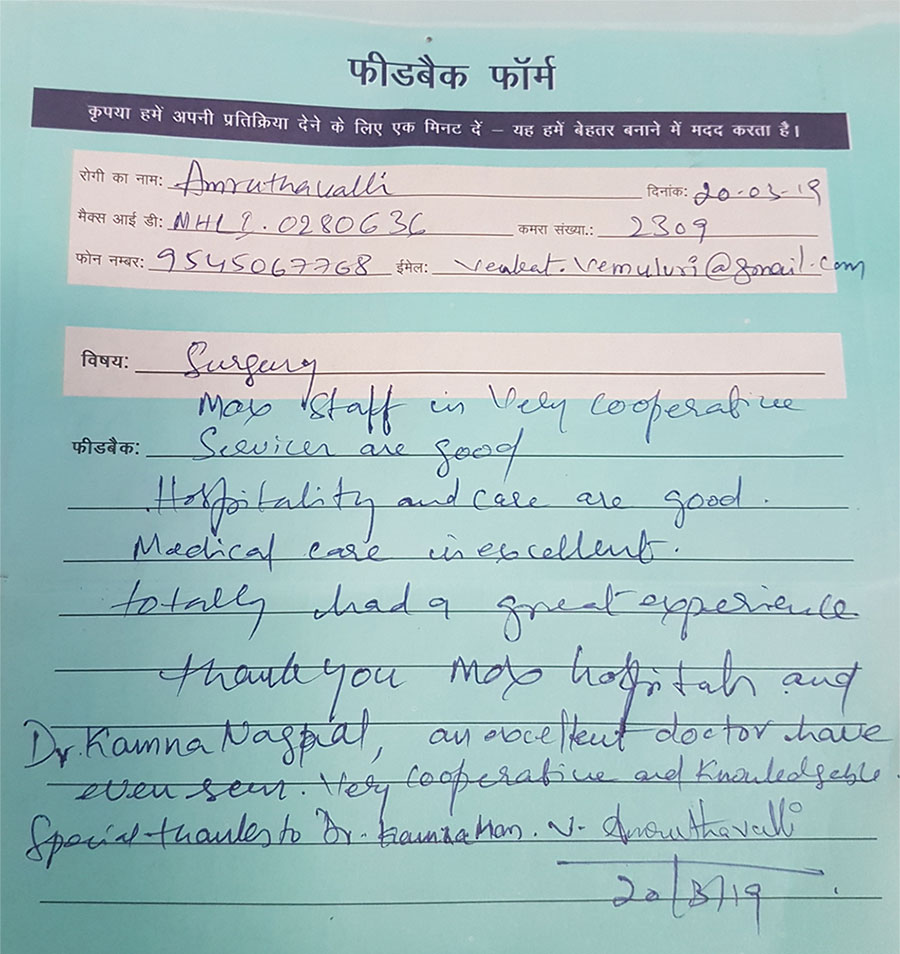 फीडबैक फॉर्म
कृपया हमें अपनी प्रतिक्रिया देने के लिए एक मिनट दें – यह हमें बेहतर बनाने में मदद करता है।
रोगी का नाम: Amruthavalli दिनांक: 20-03-19
मैक्स आई डी: MHL1.0280636 कमरा संख्या.: 2309
फोन नम्बर: 9545067768 ईमेल: venkat.vemuluri@gmail.com
विषय: Surgery
Max Staff is Very cooperative
फीडबैक: Services are good
Hospitality and care are good.
Medical care is excellent.
totally had a great experience
thank you Max hospitals and
Dr. Kamna Nagpal, an excellent doctor have
even seen. Very cooperative and Knowledgable
Special thanks to Dr. Kamna Mam. V. Amruthavalli
20/3/19